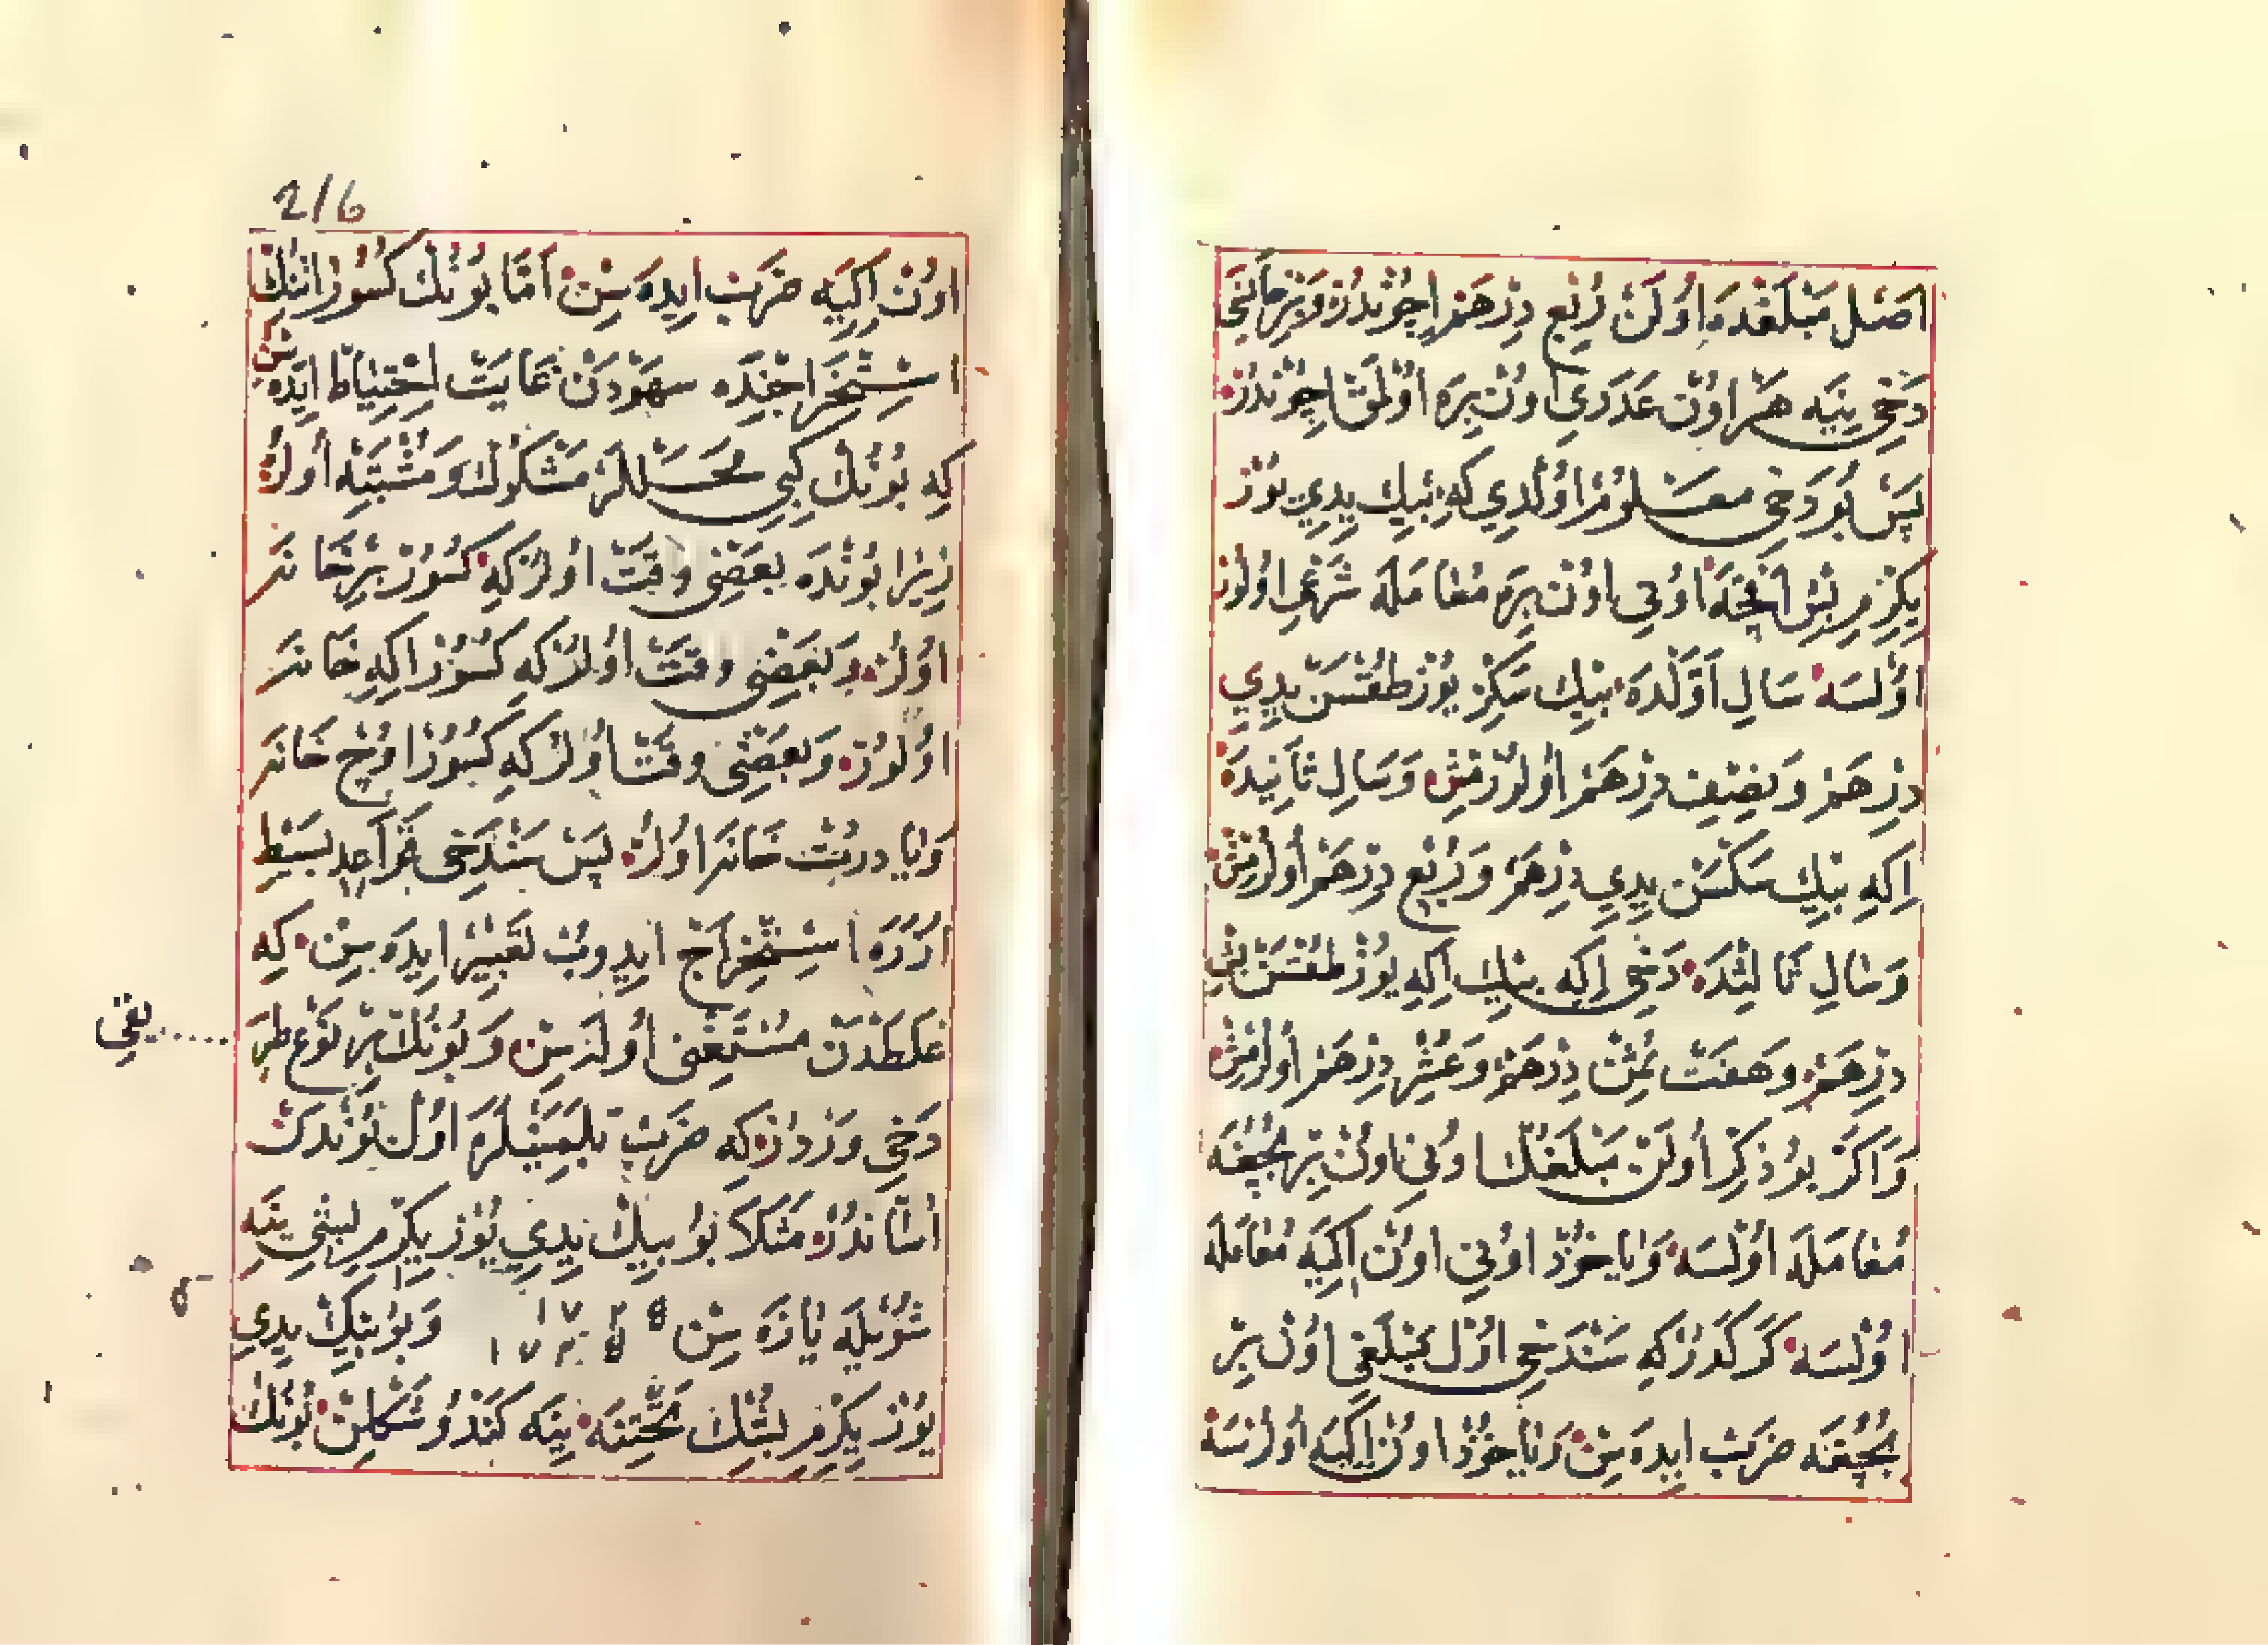 اصل مبلغده اولن ربع درهم اچوندر و بر خانه‌نی
دخی ینه هر اون عددی اون بره اولمق اچوندر
پس بو دخی معلوم اولدی که بیك یدی یوز
یكرم بش اقچه اونی اون بره معامله شرعی اولور
اولسه سال اولده بیك سكز یوز طقسن یدی
درهم و نصف درهم اولورمش و سال ثانیده
اكه بیك سكسن یدی درهم و ربع درهم اولرمش
و سال ثالثده دخی اكه بیك اكه یوز طقسن بش
درهم و هفت ثمن درهم و عشر درهم اولرمش
و اكر بو ذكر اولن مبلغك اونی اون بر بچغه
معامله اولسه و یا خود اونی اون اكیه معامله
اولسه كركدر كه سندخی اول مبلغی اون بر
بچغه ضرب ایده سن و یا خود اون اكیه اولرسه
2/6
اون اكیه ضرب ایده سن اما بونك كسوراتنك
استخراجنده سهودن غایت احتیاط ایده سن
كه بونك كبی محللر مشكوك و مشتبه اولر
زیرا بونده بعضی وقت اولر كه كسور بر خانه
اولر و بعضی وقت اولر كه كسور اكه خانه
اولور و بعضی وقت اولر كه كسور اوچ خانه
و یا درت خانه اولر پس سندخی قواعد بسیط
اوزره استخراج ایدوب تعبیر ایده سن كه
غلطدن مستغنی اولرسن و بونك بر نوع طر
یقی
دخی وردر كه ضرب بلمینلره اول بوندن
اساندر مثلا بو بیك یدی یوز یكرم بشی ینه
شویله یازه سن ۱۷۲۵ ۱۷۲۵ و بو بیك یدی
یوز یكرم بشك تحتنه ینه كندو شكلن بونك